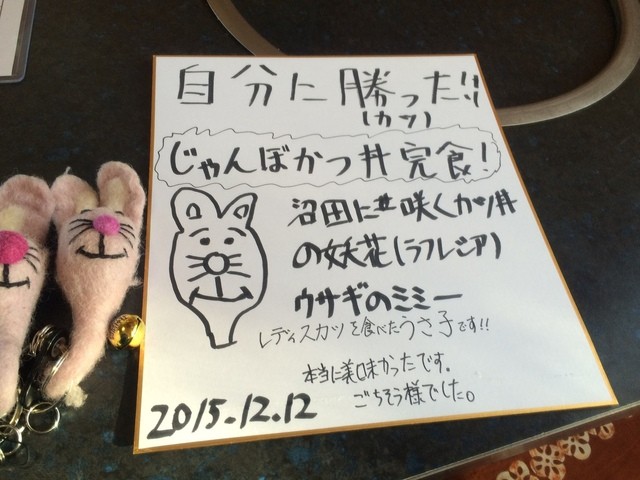 自分に勝った!!
(カツ)
じゃんぼかつ丼完食!
沼田に咲くカツ丼
の妖花(ラフレシア)
ウサギのミミー
レディスカツを食べたうさ子です!!
本当に美味かったです。
ごちそう様でした。
2015.12.12